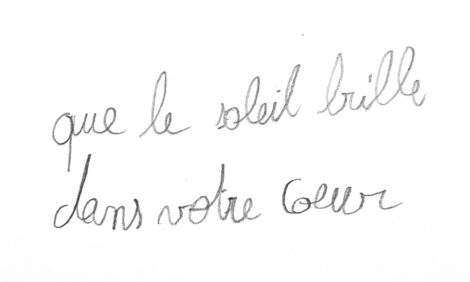 que le soleil brille
dans votre coeur